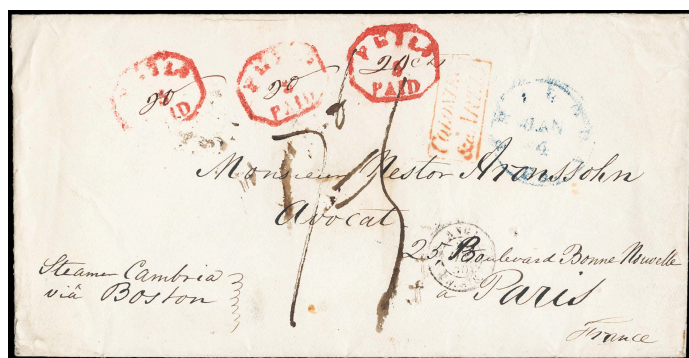 PHILA
PAID
20
PHILA
PAID
20
PHILA
PAID
20 cts
COLONIES
&c. ART.
JAN
Monsieur Nestor Aronssohn
Avocat
25 Boulevard Bonne Nouvelle
à Paris
France
Steamer Cambria
viâ Boston